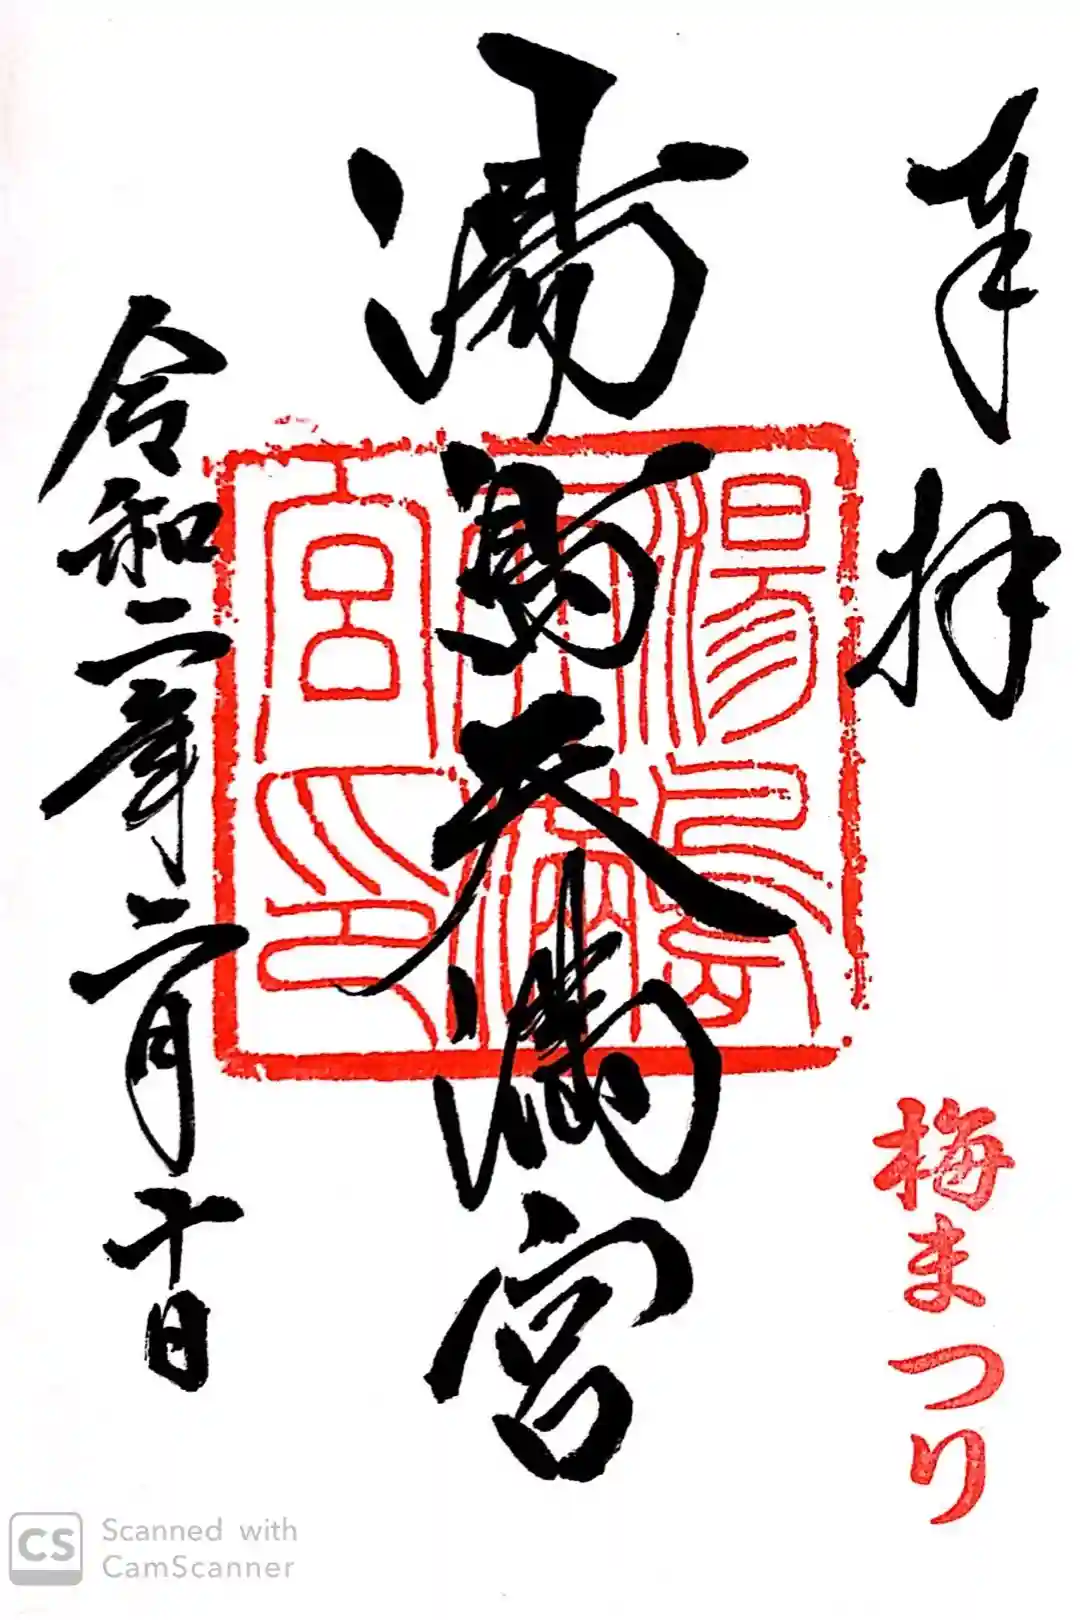 奉拝
梅まつり
湯島天満宮
湯島天満宮印
令和二年二月十日
CS Scanned with
CamScanner